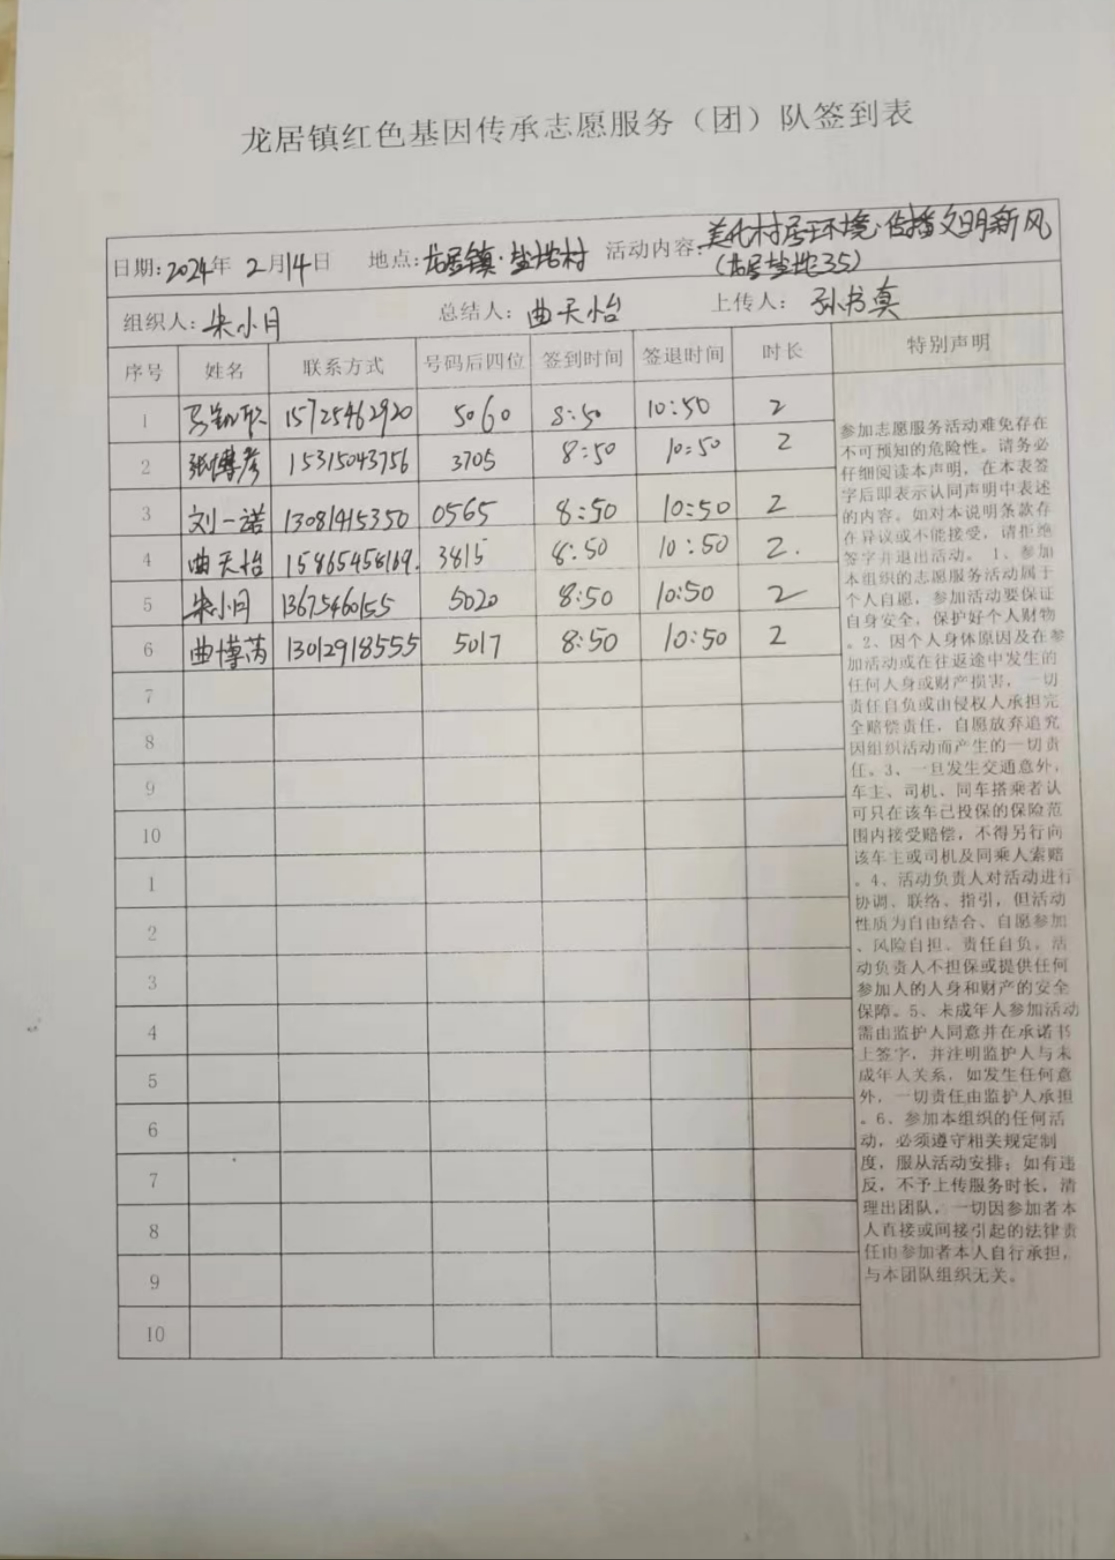 龙居镇红色基因传承志愿服务（团）队签到表
日期:2024年 2月14日 地点:龙居镇·盐垛村 活动内容:美化村居环境·传播文明新风
（龙居盐垛35）
组织人:朱小月 总结人:曲天怡 上传人:孙书真
序号 姓名 联系方式 号码后四位 签到时间 签退时间 时长 特别声明
1 15725462920 5060 8:50 10:50 2
2 张博彦 15315043756 3705 8:50 10:50 2
3 刘一诺 13081415350 0565 8:50 10:50 2
4 曲天怡 15865458169. 3815 8:50 10:50 2.
5 朱小月 13675460155 5020 8:50 10:50 2
6 曲博芮 13012918555 5017 8:50 10:50 2
7
8
9
10
1
2
3
4
5
6
7
8
9
10
参加志愿服务活动难免存在
不可预知的危险性。请务必
仔细阅读本声明，在本表签
字后即表示认同声明中表述
的内容。如对本说明条款存
在异议或不能接受，请拒绝
签字并退出活动。 1、参加
本组织的志愿服务活动属于
个人自愿，参加活动要保证
自身安全，保护好个人财物
。2、因个人身体原因及在参
加活动或在往返途中发生的
任何人身或财产损害，一切
责任自负或由侵权人承担完
全赔偿责任，自愿放弃追究
因组织活动而产生的一切责
任。3、一旦发生交通意外，
车主、司机、同车搭乘者认
可只在该车已投保的保险范
围内接受赔偿，不得另行向
该车主或司机及同乘人索赔
。4、活动负责人对活动进行
协调、联络、指引，但活动
性质为自由结合、自愿参加
、风险自担、责任自负，活
动负责人不担保或提供任何
参加人的人身和财产的安全
保障。5、未成年人参加活动
需由监护人同意并在承诺书
上签字，并注明监护人与未
成年人关系，如发生任何意
外，一切责任由监护人承担
。6、参加本组织的任何活
动，必须遵守相关规定制
度，服从活动安排；如有违
反，不予上传服务时长，清
理出团队，一切因参加者本
人直接或间接引起的法律责
任由参加者本人自行承担，
与本团队组织无关。